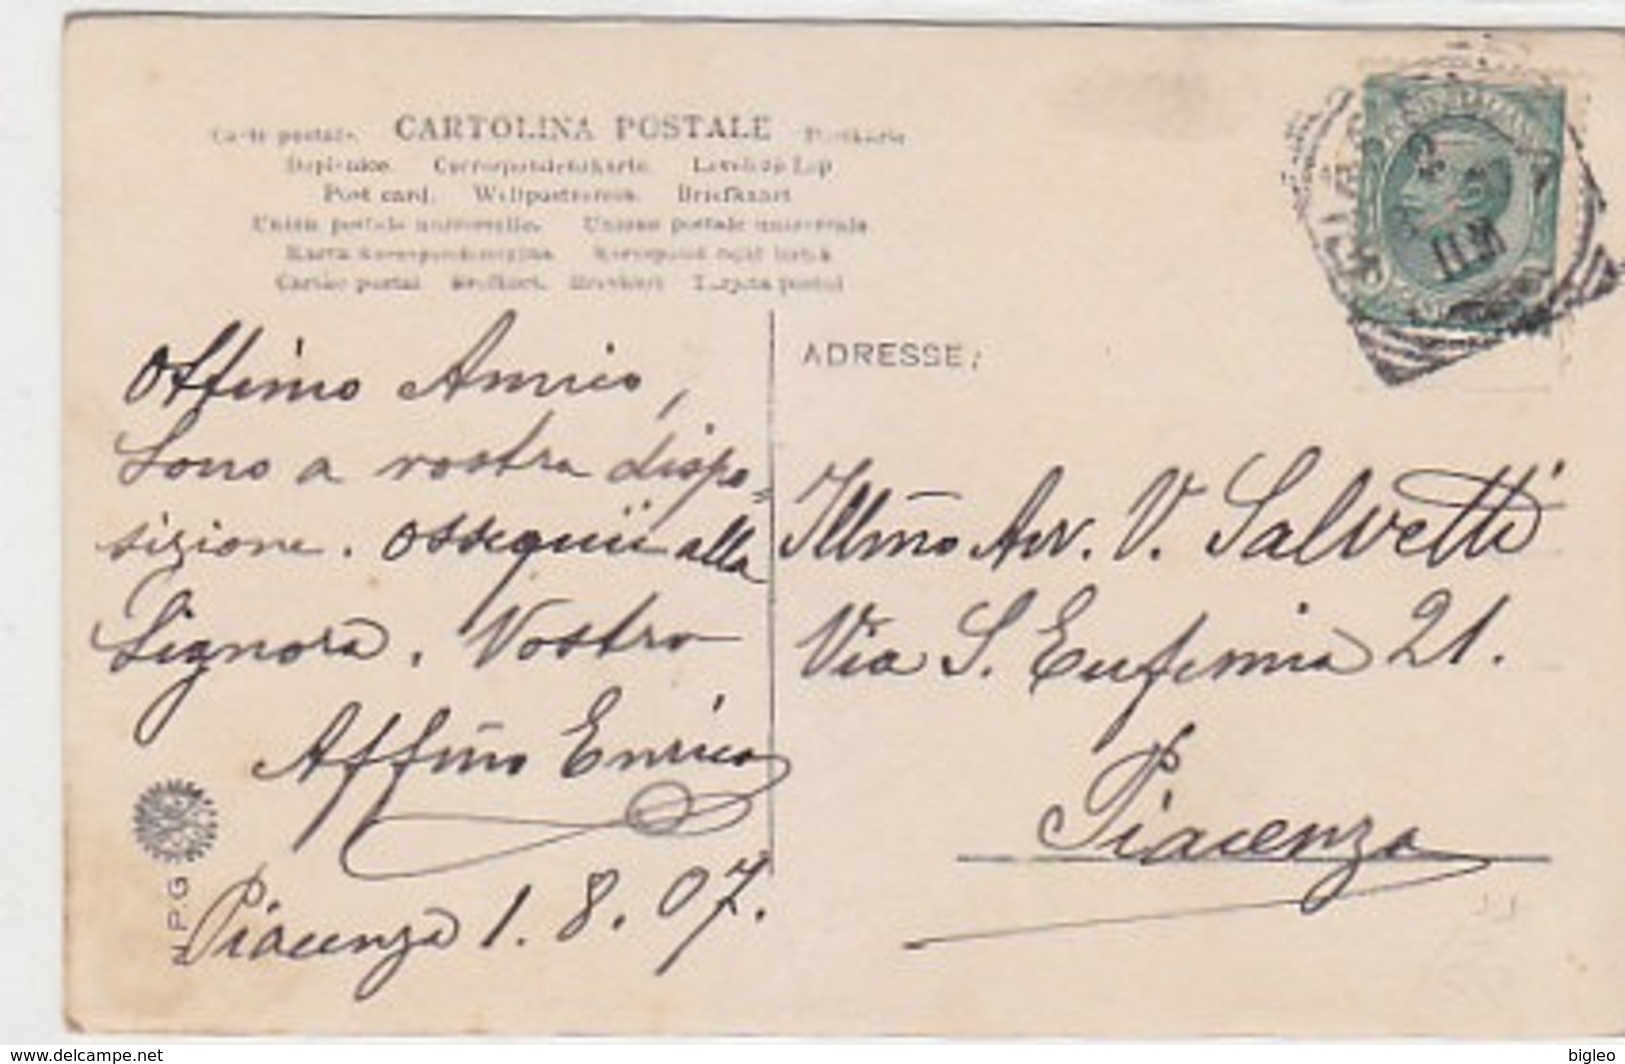 Carte postale. CARTOLINA POSTALE Postkarte
Dopisnice. Correspondenzkarte. Levelező-Lap
Post card. Weltpostverein. Briefkaart
Union postale universelle. Unione postale universale
Karta korespondencyjna.
Cartão postal Brefkort. Brevkort Tarjeta postal
ADRESSE:
Ottimo Amico,
Sono a vostra dispo=
sizione. Ossequii alla
Signora. Vostro
Affmo Enrico
Piacenza 1.8.07.
N.P.G
Illmo Avv. V. Salvetti
Via S. Eufemia 21.
Piacenza
www.delcampe.net
bigleo